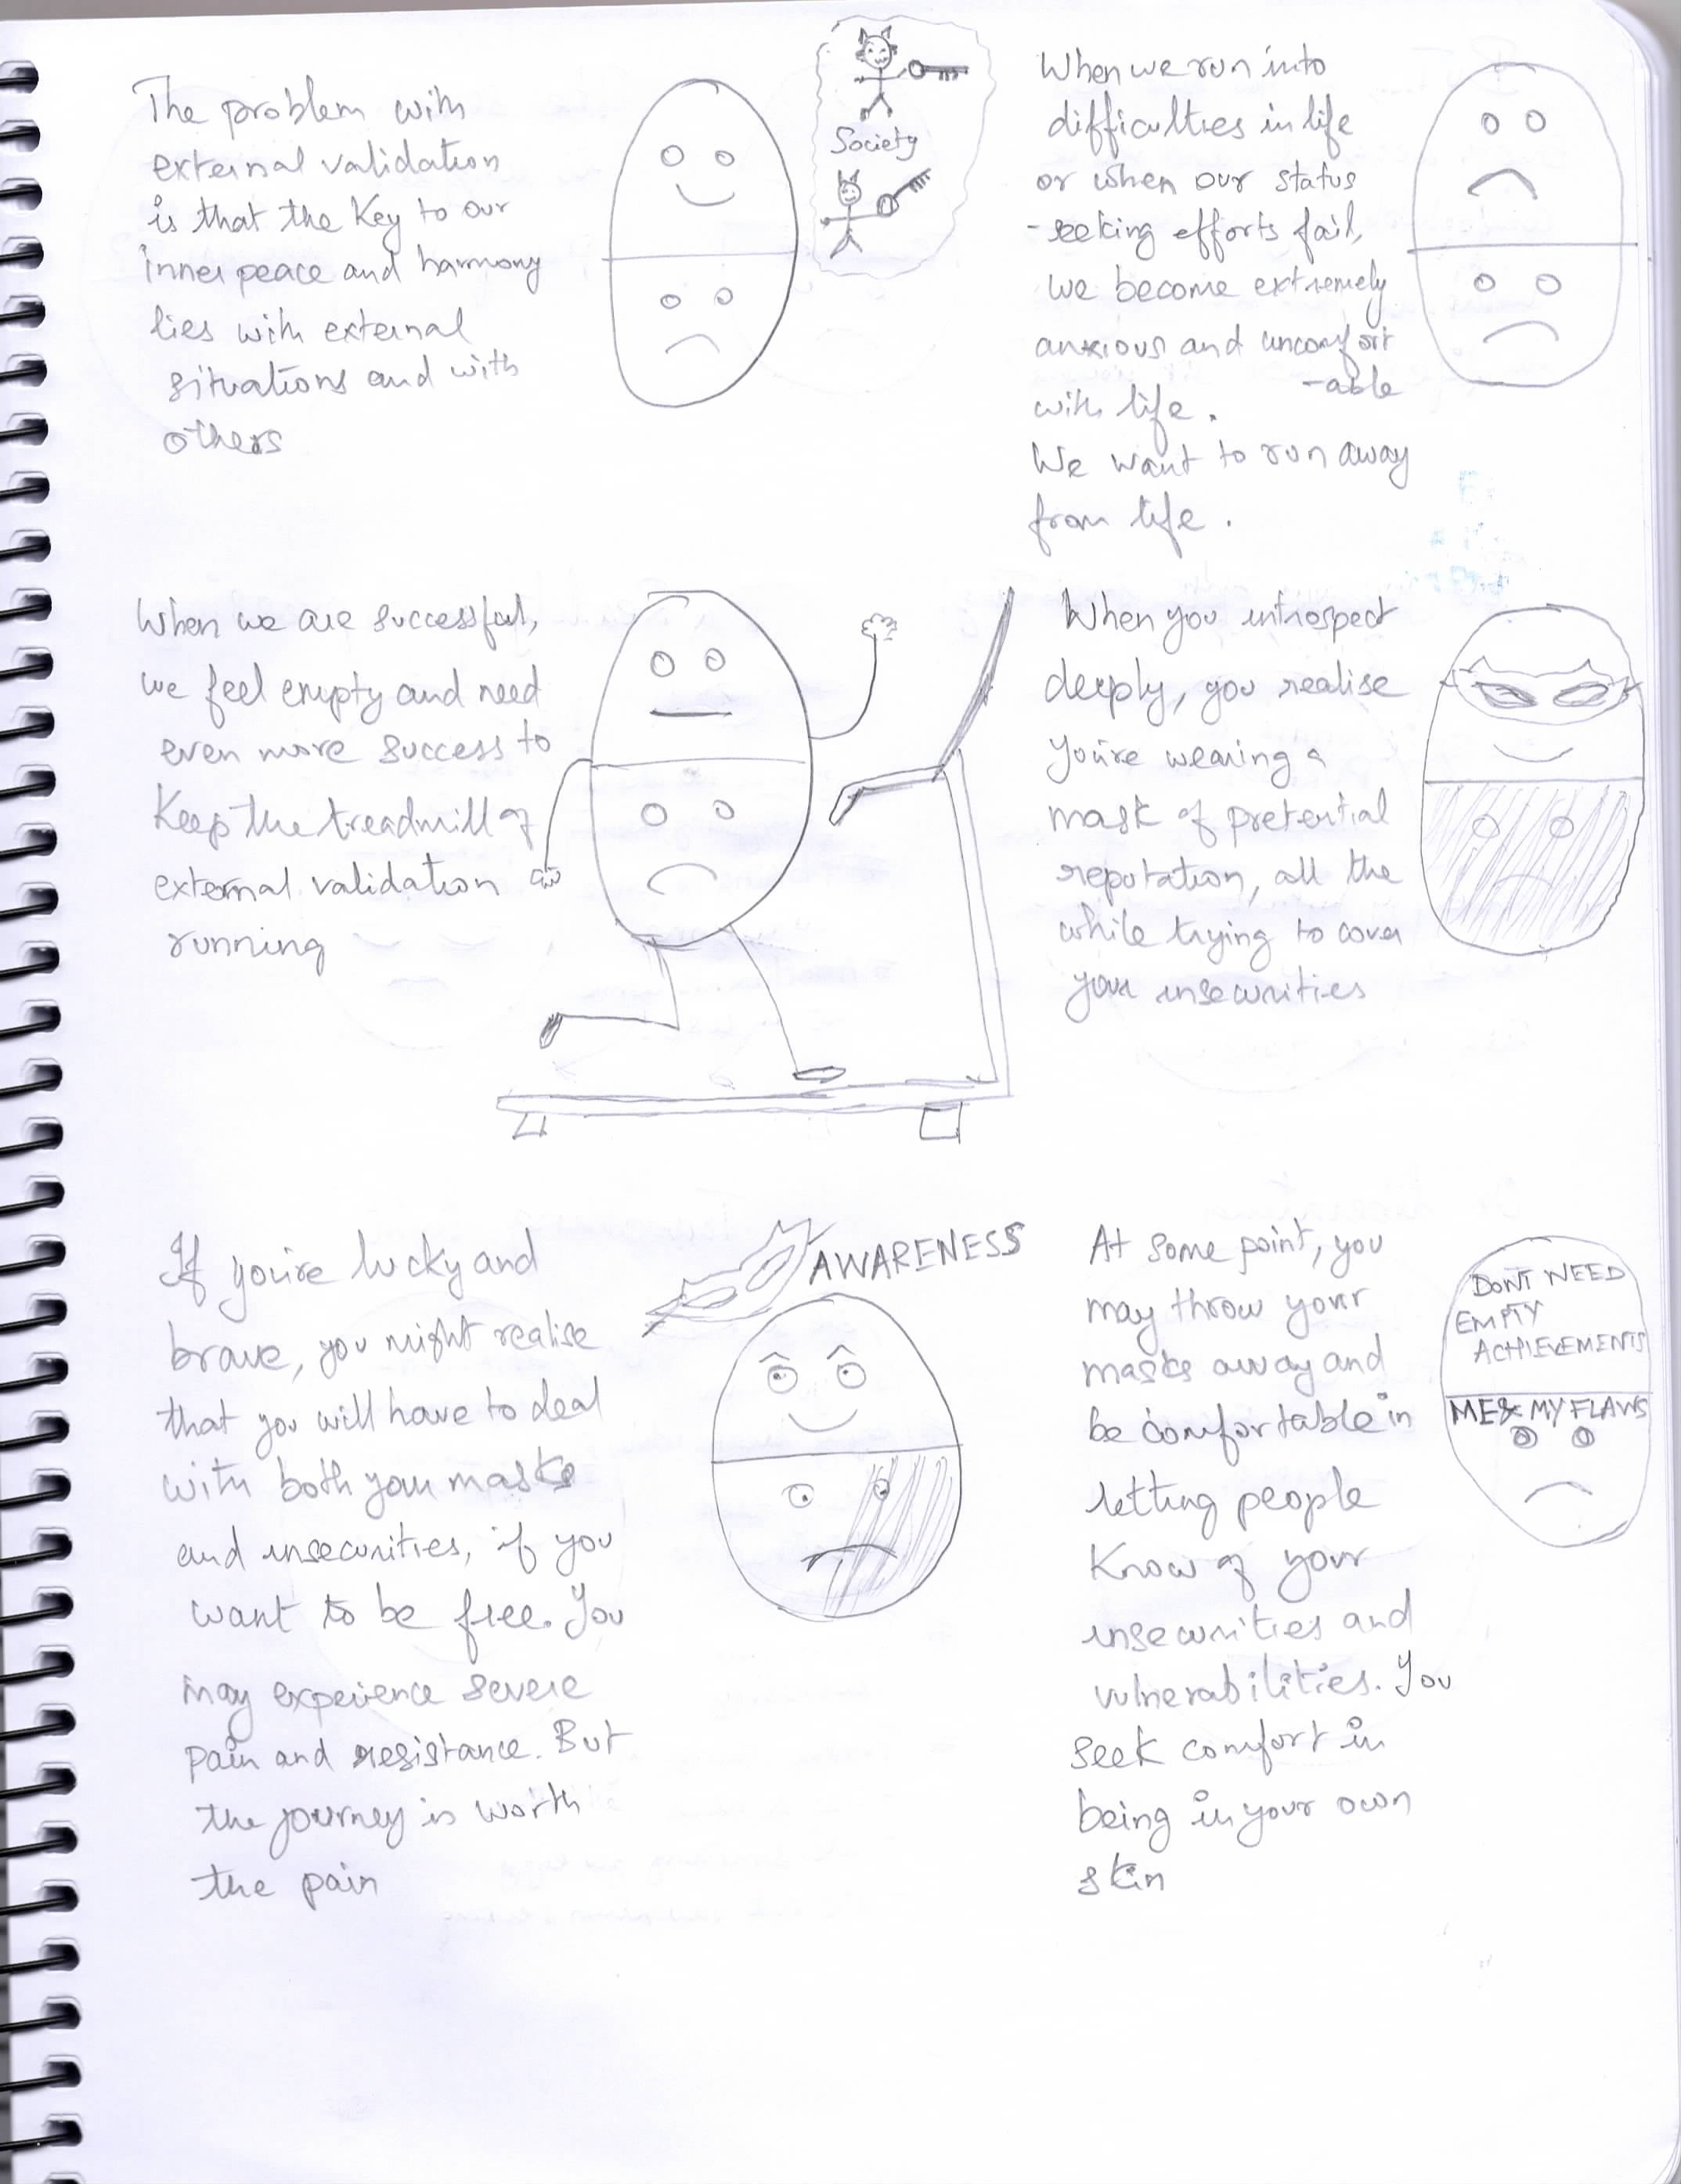 The problem with
external validation
is that the Key to our
inner peace and harmony
lies with external
situations and with
others
Society
When we run into
difficulties in life
or when our status
-seeking efforts fail,
we become extremely
anxious and uncomfort
-able
with life.
We want to run away
from life.
When we are successful,
we feel empty and need
even more success to
Keep the treadmill of
external validation
running
When you introspect
deeply, you realise
you're wearing a
mask of pretential
reputation, all the
while trying to cover
your insecurities
If you're lucky and
brave, you might realise
that you will have to deal
with both your masks
and insecurities, if you
want to be free. You
may experience severe
pain and resistance. But
the journey is worth
the pain
AWARENESS
At some point, you
may throw your
masks away and
be comfortable in
letting people
Know of your
insecurities and
vulnerabilities. You
seek comfort in
being in your own
skin
DONT NEED
EMPTY
ACHIEVEMENTS
ME & MY FLAWS